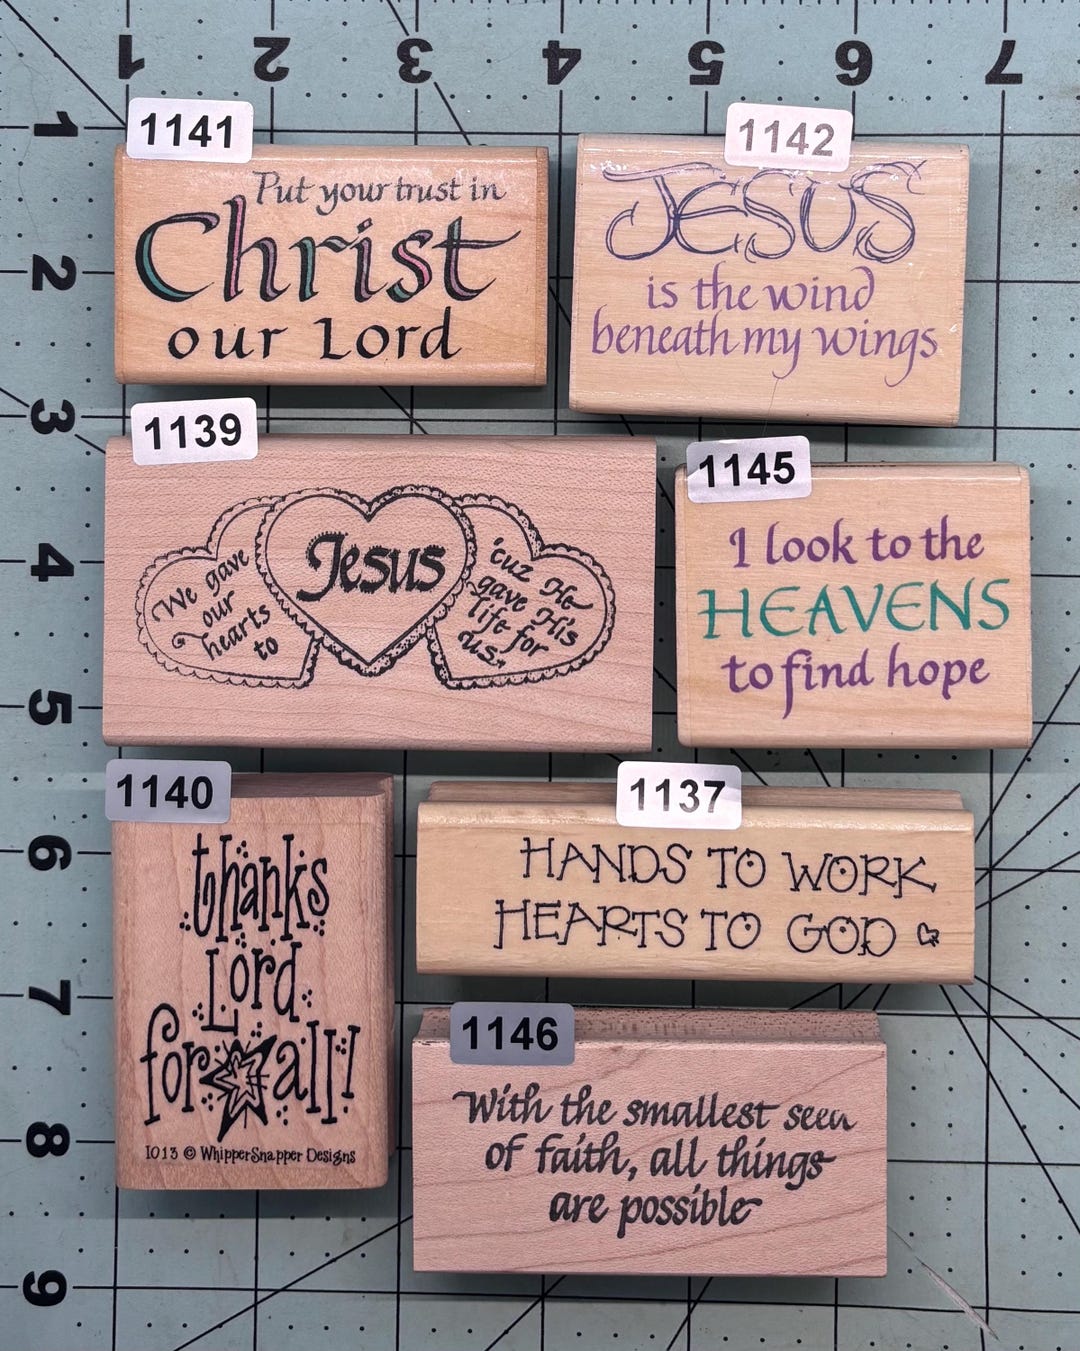 1 2 3 4 5 6 7
1
2
3
4
5
6
7
8
9
1141
Put your trust in
Christ
our Lord
1142
JESUS
is the wind
beneath my wings
1139
We gave
our
hearts
to
Jesus
'cuz He
gave His
life for
us.
1145
I look to the
HEAVENS
to find hope
1140
thanks
Lord
for all!
1013 © WhipperSnapper Designs
1137
HANDS TO WORK
HEARTS TO GOD
1146
With the smallest seed
of faith, all things
are possible